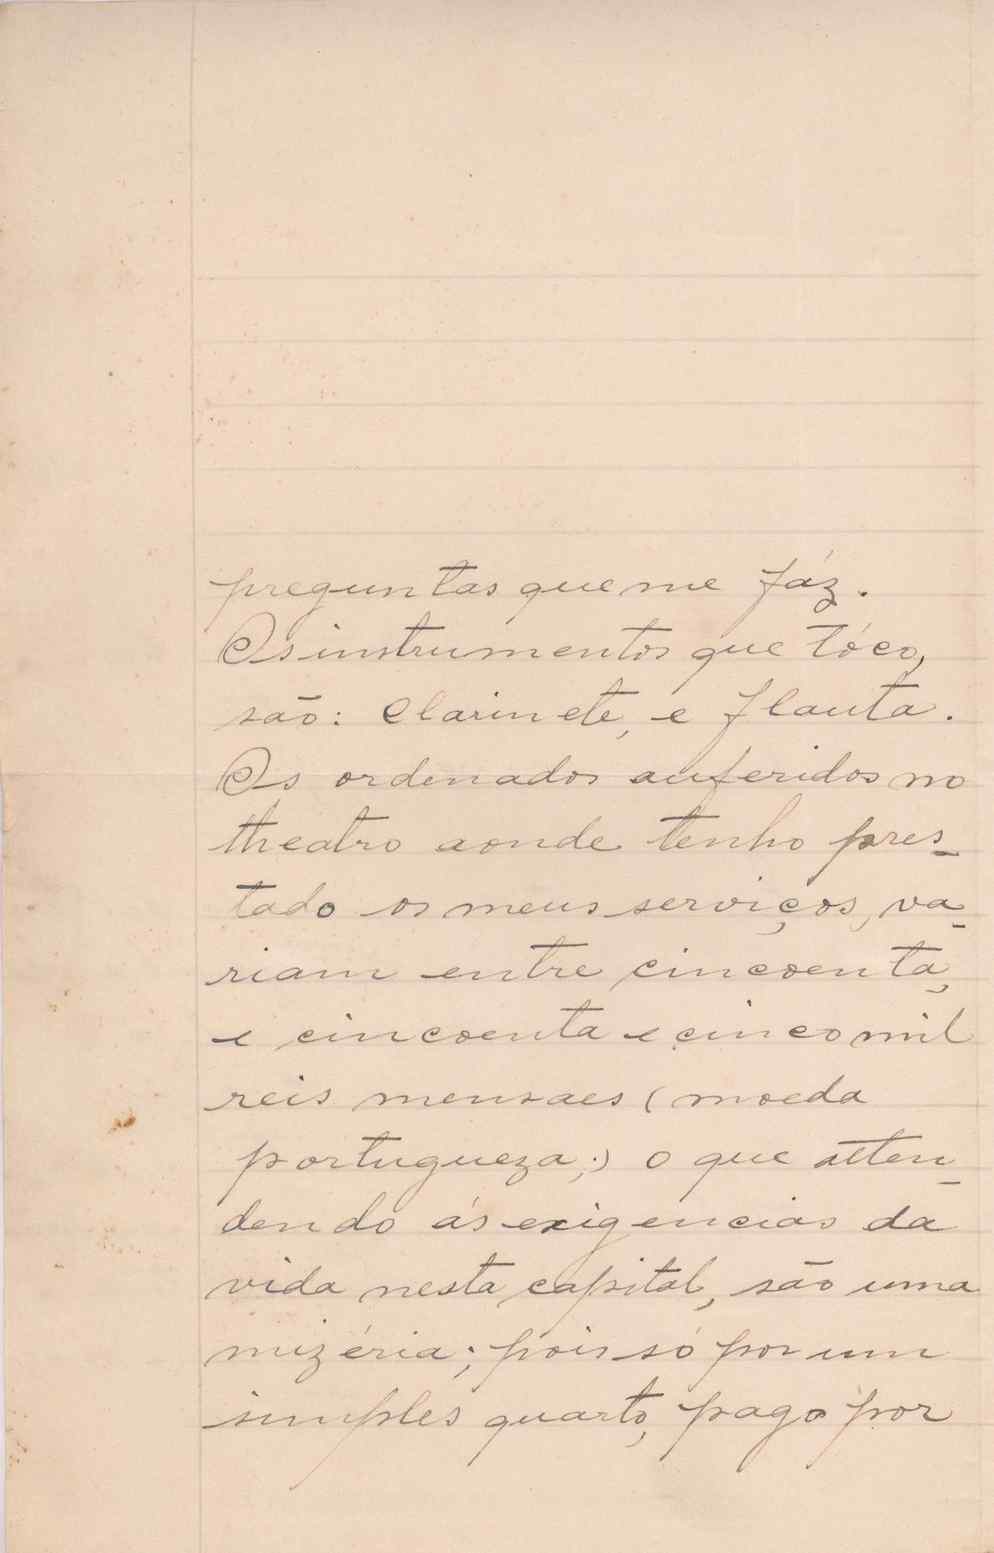 preguntas que me fáz.
Os instrumentos que tóco,
são: clarinete, e flauta.
Os ordenados auferidos no
theatro aonde tenho pres-
tado os meus serviços, va-
riam entre cincoenta,
e cincoenta e cinco mil
reis mensaes (moeda
portugueza;) o que atten-
dendo ás exigencias da
vida nesta capital, são uma
mizéria; pois só por um
simples quarto, pago por